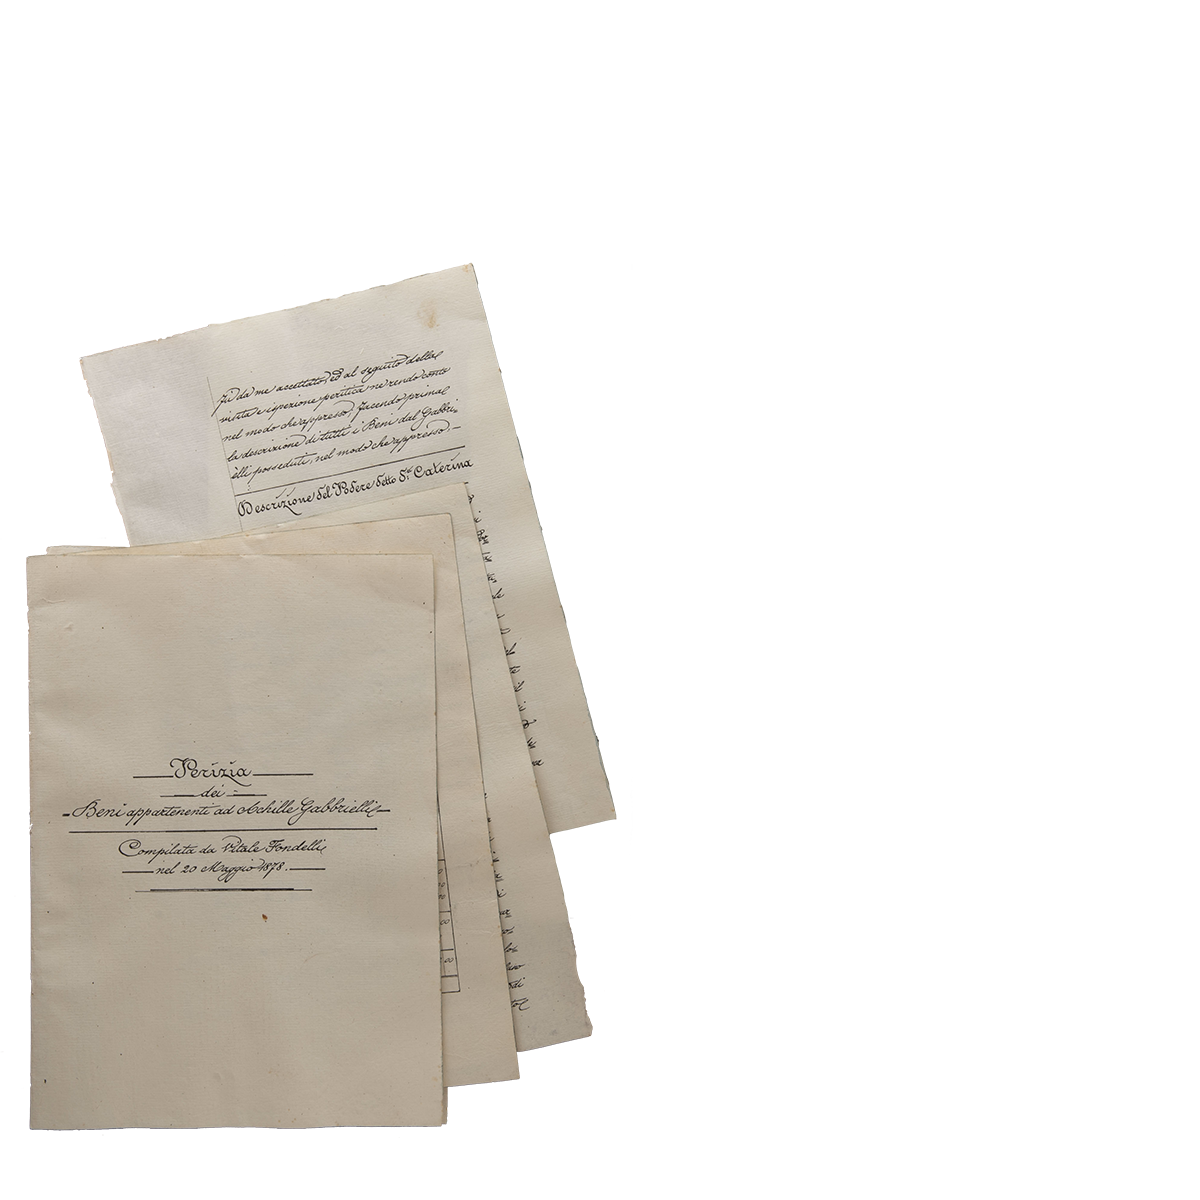 fù da me accettato, ed al seguito della
visita e ispezione peritica ne rendo conto
nel modo che appresso, facendo prima
la descrizione di tutti i Beni dal Gabbri-
elli posseduti, nel modo che appresso.—
Descrizione del Podere detto di S.ta Caterina
Perizia
dei
Beni appartenenti ad Achille Gabbrielli
Compilata da Vitale Fondelli
nel 20 Maggio 1878.